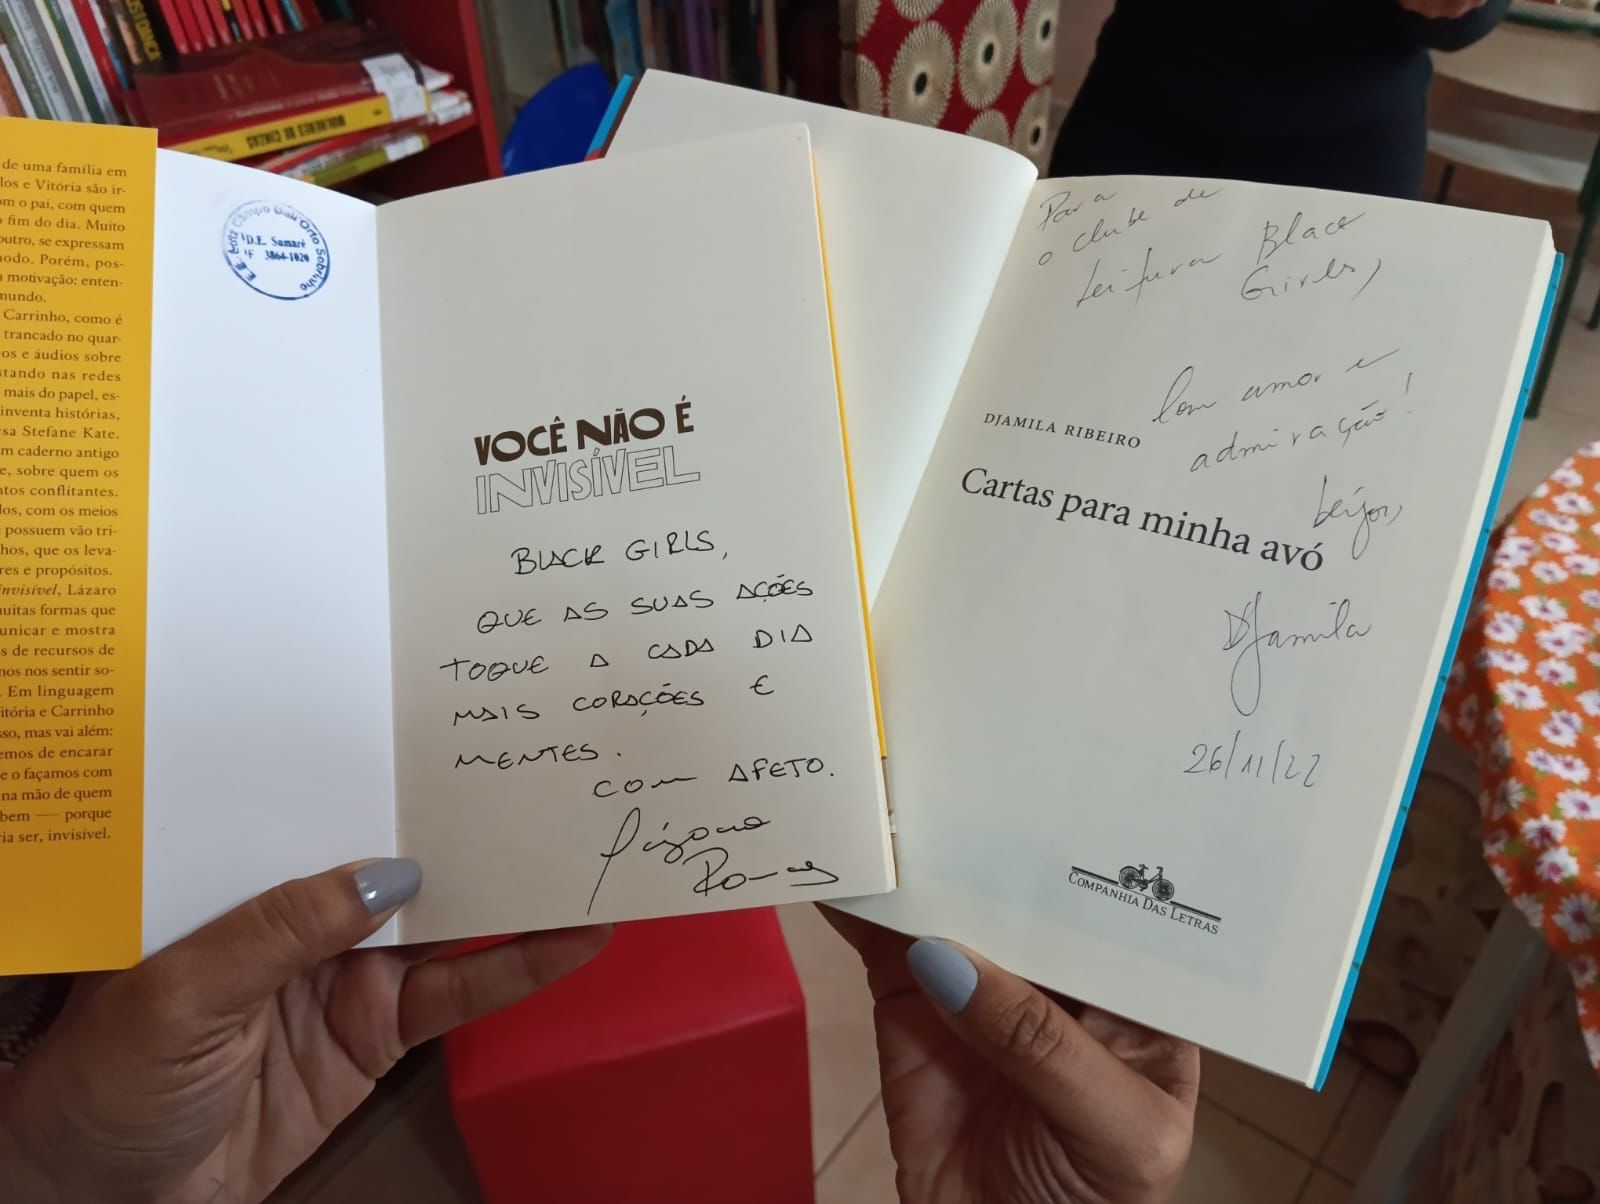 de uma família em
los e Vitória são ir-
om o pai, com quem
o fim do dia. Muito
outro, se expressam
modo. Porém, pos-
a motivação: enten-
mundo.
Carrinho, como é
trancado no quar-
os e áudios sobre
stando nas redes
mais do papel, es-
inventa histórias,
sa Stefane Kate.
m caderno antigo
e, sobre quem os
ntos conflitantes.
los, com os meios
possuem vão tri-
hos, que os leva-
res e propósitos.
nvisível, Lázaro
muitas formas que
unicar e mostra
s de recursos de
mos nos sentir so-
. Em linguagem
itória e Carrinho
sso, mas vai além:
emos de encarar
e o façamos com
na mão de quem
bem — porque
ria ser, invisível.
Campo Dall'Orto Sobrinho
D.E. Sumaré
3864-1020
VOCÊ NÃO É
INVISÍVEL
BLACK GIRLS,
QUE AS SUAS AÇÕES
TOQUE A CADA DIA
MAIS CORAÇÕES E
MENTES.
COM AFETO.
MULHERES DE CINZAS
Para
o clube de
Leitura Black
Girls,
Com amor e
admiração!
DJAMILA RIBEIRO
Cartas para minha avó
beijos,
Djamila
26/11/22
COMPANHIA DAS LETRAS